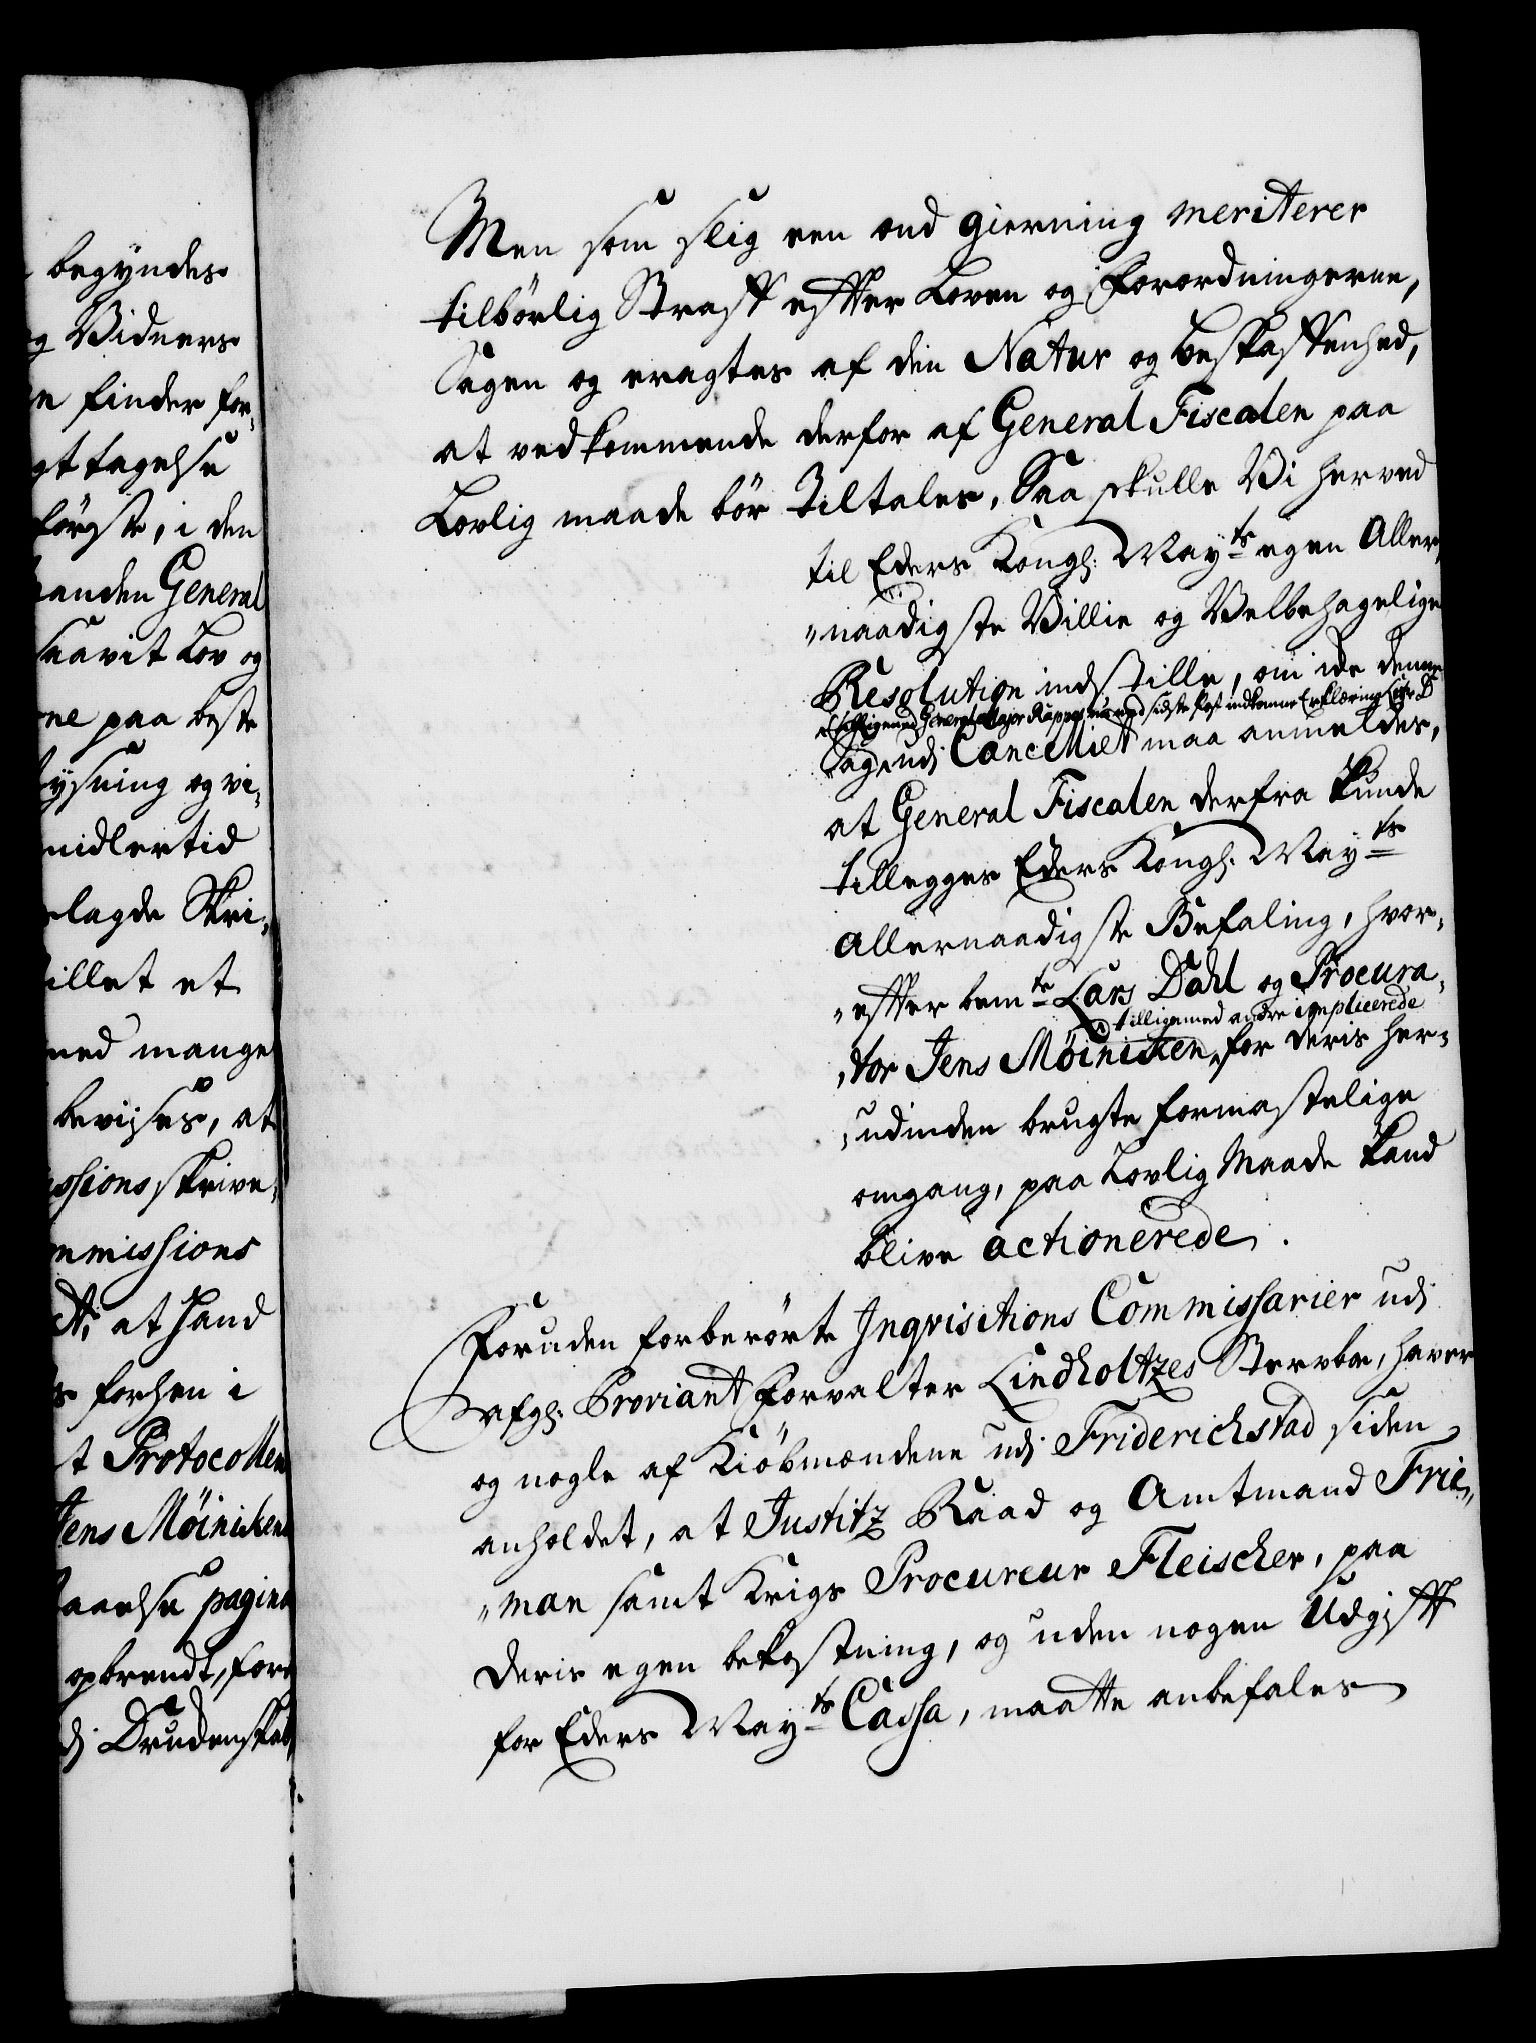 begyndes
og Vidners
en finder for,,
gttagelse
förste, i den
anden General
saavit Lov og
ne paa beste
lysning og vi,,
midlertid
lagde Skri,,
illet et
med mange
bevises, at
issions skrive,,
mmissions
at Hand
forhen i
t Protocollen
Jens Möinichen
pagina
opbrendt, for
di Drudenskab
Men som slig een ond gierning meriterer
tilbörlig Straff effter Loven og Forordningerne,
Sagen og eragtes af den Natur og beskaffenhed,
at vedkommende derfor af General Fiscalen paa
Lovlig maade bör Tiltales, Saa skulle Vi herved
til Eders Kongl: Mayts egen Aller,,
,,naadigste Villie og Velbehagelige
Resolution indstille, om icke denne
tilligemed General Major Kappes nu med sidste Post indkomne Erklæring Litr: B
Sag udj Cancelliet maa anmeldes,
at General Fiscalen derfra kunde
tillegges Eders Kongl: Mayts
allernaadigste Befaling, hvor,,
,,effter bemte Lars Dahl og Procura,,
tilligemed andre implicerede
,,tor Jens Möinichen, for deris her,,
,,udinden brugte formastelige
omgang, paa Lovlig Maade kand
blive actionerede.
Foruden forberörte Inqvisitions Commissarier udj
afgl: Proviant Forvalter Lindholtzes Stervboe, haver
og nogle af Kiöbmændene udj Friderichstad siden
anholdet, at Justitz Raad og Amtmand Frie,,
,,man samt Krigs Procureur Fleischer, paa
deris egen bekostning, og uden nogen Udgifft
for Eders Mayts Cassa, maatte anbefales